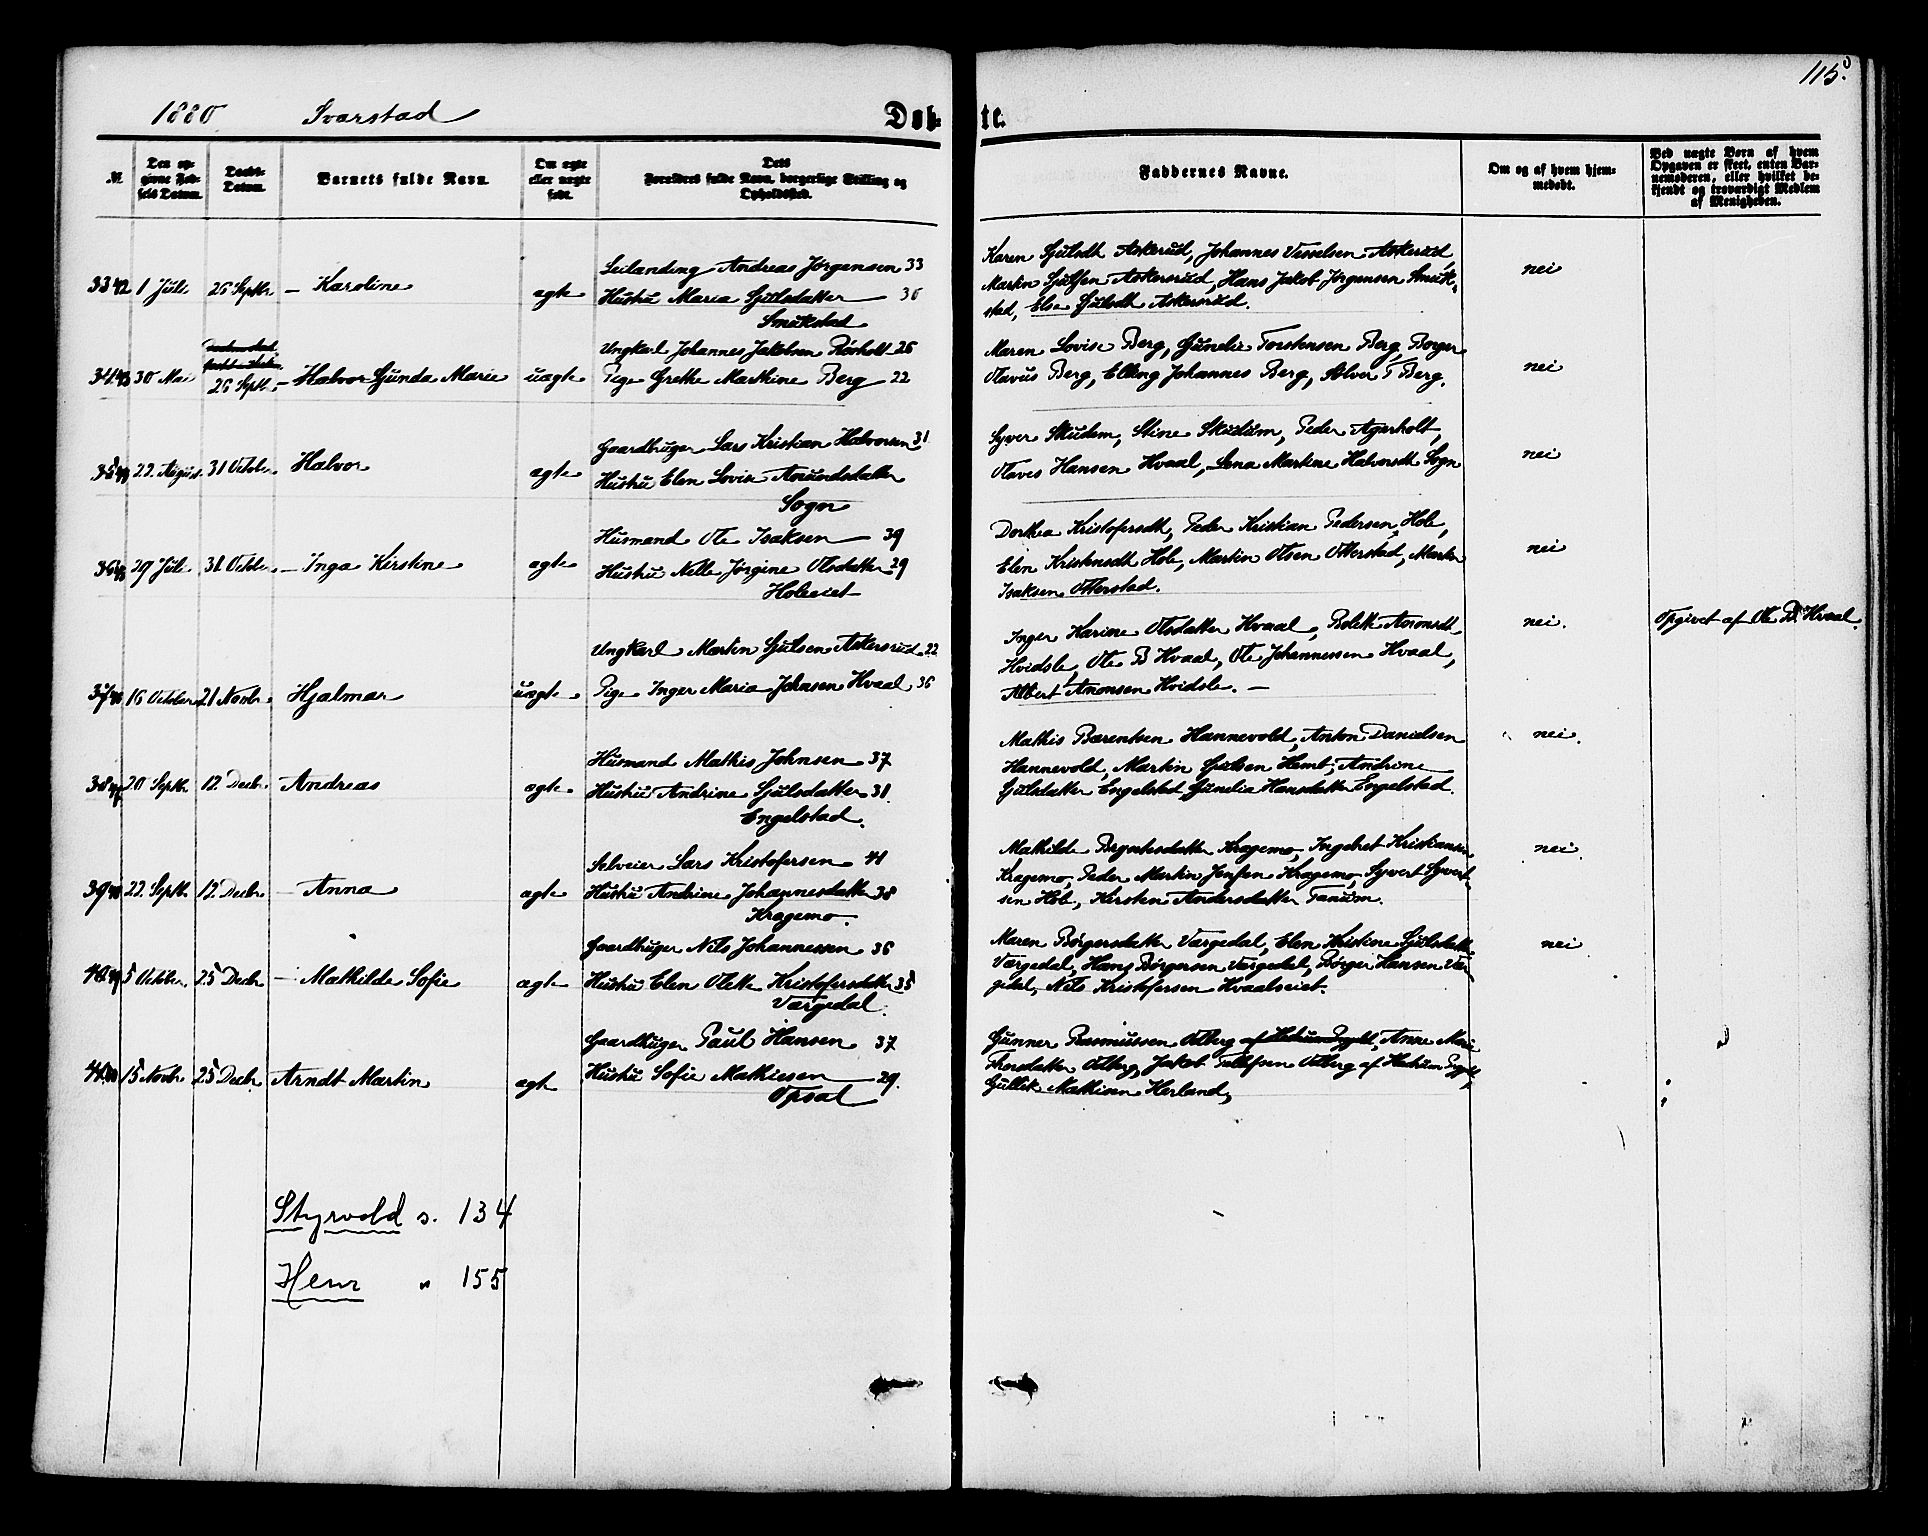 115.
1880 Svarstad
Døbte.
№
Den opgivne Fødsels Datum.
Daabs-Datum.
Barnets fulde Navn.
Om ægte eller uægte født.
Dets Forældres fulde Navn, borgerlige Stilling og Opholdssted.
Faddernes Navne.
Om og af hvem hjemmedøbt.
Ved uægte Børn af hvem Opgaven er skeet, enten Barnemoderen, eller hvilket bekjendt og troværdigt Medlem af Menigheden.
33 1 Juli 26 Septbr. – Karoline ægte
Leilænding Andreas Jørgensen 33
Hustru Maria Gjulsdatter 36
Smukstad
Karen Gjulsdtr Askerud, Johannes Vesselsen Askerud,
Martin Gjulsen Askersrud, Hans Jakob Jørgensen Smuk-
stad, Else Gjulsdtr Askersrud.
nei
34 30 Mai 26 Septbr. – Halvor Gunda Marie uægte
Ungkarl Johannes Jakobsen Røsholt 26
Pige Grethe Marthine Berg 22
Maren Lovise Berg, Gunelie Torstensen Berg, Borger
Olavus Berg, Elling Johannes Berg, Alver T Berg.
nei
35 22 August 31 Octobr. Halvor ægte
Gaardbruger Lars Kristian Halvorsen 31
Hustru Elen Lovise Amundsdatter
Sogn
Syver Skudem, Stine Skudum, Peder Agerholt,
Olaves Hansen Hvaal, Lena Martine Halvorsdt Sogn
nei
36 29 Juli 31 Octobr. – Inga Kirstine ægte
Husmand Ole Isaksen 39
Hustru Nille Jørgine Olsdatter 29
Holeeiet
Dorthea Kristofersdt, Peder Kristian Pedersen Hole,
Elen Kristensdt Hole, Martin Olsen Otterstad, Martin
Isaksen Otterstad.
nei
37 16 October 21 Novbr. Hjalmar uægte.
Ungkarl Martin Gjulsen Askersrud 22
Pige Inger Maria Johnsen Hvaal 36
Inger Karine Olsdatter Hvaal, Bolette Amonsdt
Hvidsle, Ole B Hvaal, Ole Johannessen Hvaal,
Albert Amonsen Hvidsle. –
nei.
Opgivet af Ole B. Hvaal.
38 20 Septbr. 12 Decbr. Andreas ægte
Husmand Mathis Johnsen 37
Hustru Andrine Gjulsdatter 31.
Engelstad.
Mathis Bærentsen Hannevold, Anton Danielsen
Hannevold, Martin Gjulsen Hemt, Andrine
Gjulsdatter Engelstad, Gunelia Hansdatter Engelstad.
nei.
39 22 Septbr. 12 Decbr. – Anna ægte
Selveier Lars Kristofersen 41
Hustru Andrine Johannesdatter 38
Kragemo.
Mathilde Bryntesdatter Kragemo, Ingebret Kristiansen
Kragemo, Peder Martin Jensen Kragemo, Syvert Syvert-
sen Hob, Kirsten Andersdatter Tanum.
nei.
40 5 October 25 Decbr. – Mathilde Sofie ægte
Gaardbruger Nils Johannessen 36
Hustru Elen Olette Kristofersdatter 35
Værgedal.
Maren Børgersdatter Værgedal, Elen Kristine Gjulsdatter
Værgedal, Hans Børgersen Værgedal, Børger Hansen Vær-
gedal, Nils Kristofersen Hvaalseiet.
nei
41 15 Novbr. 25 Decbr. Arndt Martin ægte
Gaardbruger Paul Hansen 37
Hustru Sofie Mathiesen 29.
Opsal
Gunner Rasmussen Odberg, Anne Marie
Thorsdatter Odberg, Jakob Tollefsen Odberg af
Gullik Mathisen Herland,
Styrvold s. 134
Hem " 155